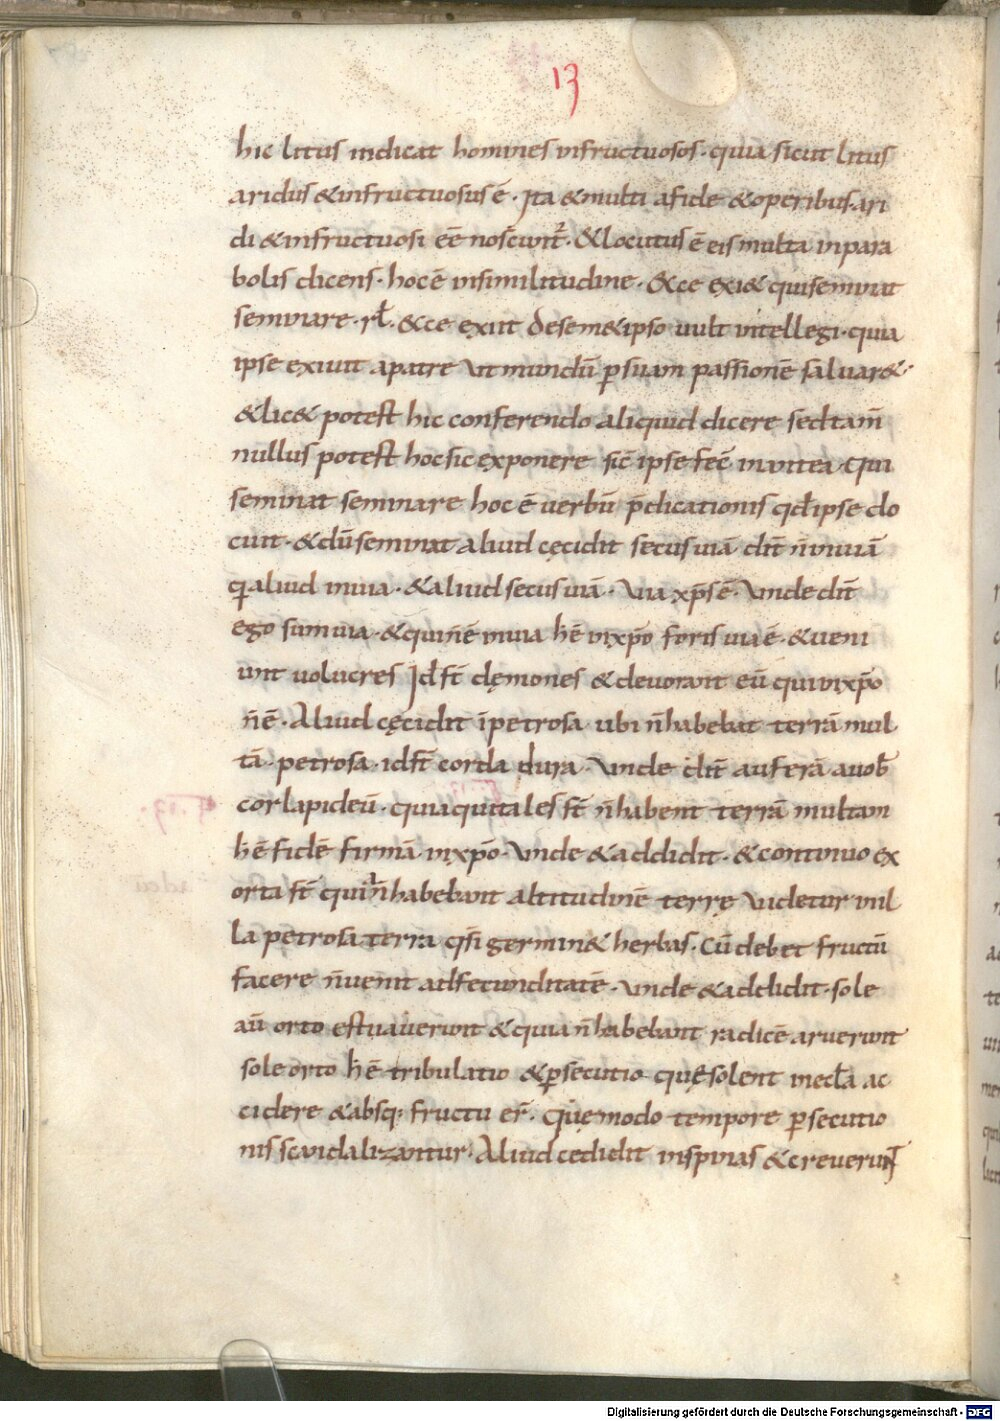 13
hic litus indicat homines infructuosos · quia sicut litus
aridus &infructuosus ē · Ita &multi afide &operibus · ari
di &infructuosi eē noscunt᷑ · &locutus ē eis multa inpara
bolis dicens · hoc ē insimilitudine · &ce exi& quiseminat
seminare · rł. &ce exiit desem&ipso uult intellegi · quia
ipse exiuit apatre ut mundū ꝑsuam passionē saluar& ·
&lic& potest hic conferendo aliquid dicere sedtam̄
nullus potest hocsic exponere sic̄ ipse fec̄ inantea · Qui
seminat seminare hoc ē uerbū p̄dicationis qđ ipse do
cuit · &dū seminat aliud cęcidit secus uiā dit̄ n̄ inuiā
q aliud inuia · &aliud secus uiā · Via xp̄s ē · Vnde dit̄
ego sum uia · &qui n̄ ē inuia h̄ ē inxp̄o foris uia ē · &ueni
unt uolucres Id st̄ dęmones &deuorant eū qui inxp̄o
n̄ ē · Aliud cęcidit īpetrosa ubi n̄ habebat terrā mul
tā · petrosa · id st̄ corda dura · Vnde dit̄ auferā auob̄
cor lapideū · quia qui tales st̄ n̄ habent terrā multam
h̄ ē fidē firmā inxp̄o · Vnde &addidit · &continuo ex
orta st̄ qui n̄ habebant altitudinē terrę Videtur nil
la petrosa terra qsi germin& herbas · Cū debet fructū
facere n̄ uenit adfecunditatē · Vnde &addidit · sole
aū orto estuauerunt &quia n̄ habebant radicē aruerunt
sole orto h̄ ē tribulatio &ꝑsecutio quę solent inecła ac
cidere &absq; fructu er̄ · Quemodo tempore ꝑsecutio
nis scandalizantur · Aliud cecidit inspinas &creuerunt